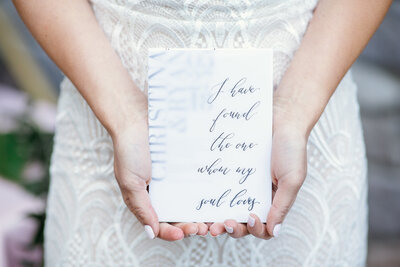 CHRISTINA
I have
found
the one
whom my
soul loves.